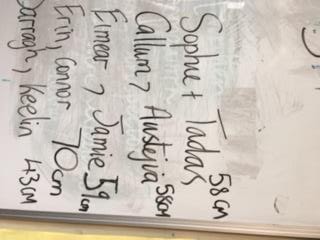 Sophie + Tadas 58cm
Callum & Austeja 58cm
Eimear & Jamie 59cm
Erin, Connor 70cm
Darragh, Keelin 43cm